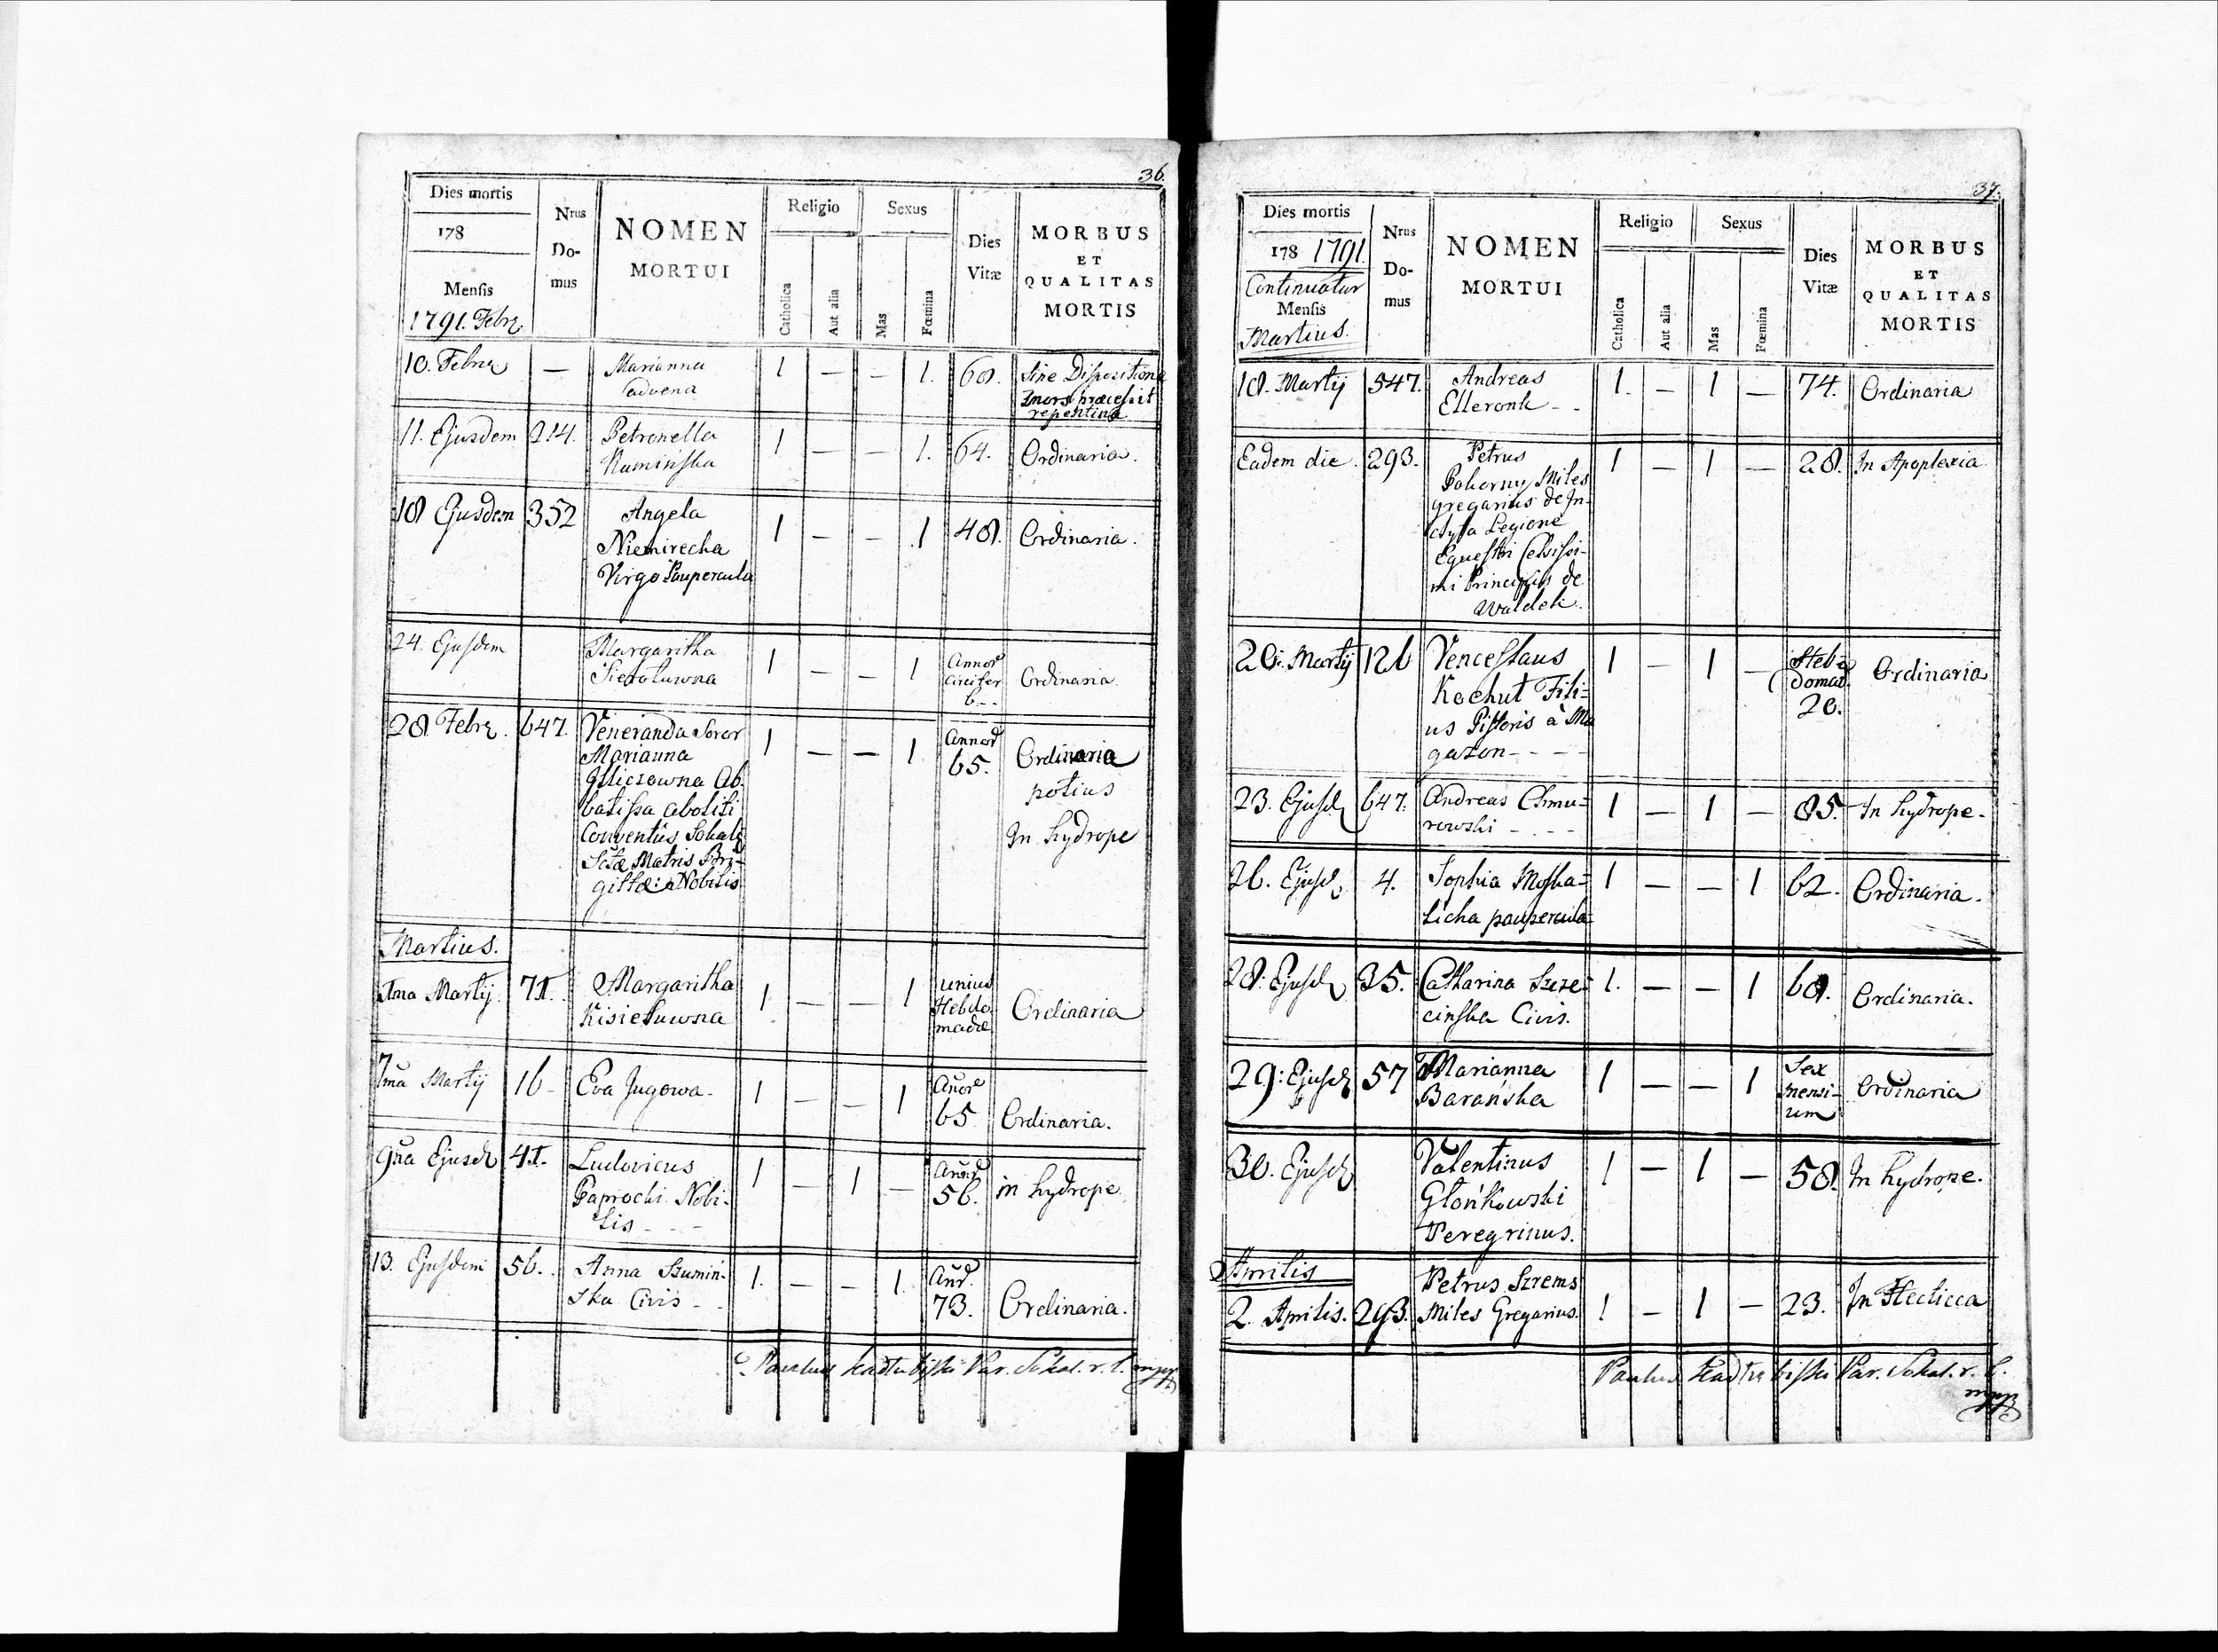 36.
Dies mortis
178
Mensis
1791. Febr.
Nrus
Do-
mus
NOMEN
MORTUI
Religio
Catholica
Aut alia
Sexus
Mas
Fœmina
Dies
Vitæ
MORBUS
ET
QUALITAS
MORTIS
10. Febr. — Marianna 1 — — 1. 60. Sine Disposition
advena mors præcessit
repentina
11. Ejusdem 214. Petronella 1 — — 1. 64. Ordinaria.
Kaminska
18 Ejusdem 352 Angela 1 — — 1 48. Ordinaria.
Niemirecka
Virgo Paupercula
24. Ejusdem Margaritha 1 — — 1 Annor Ordinaria.
circiter
6
28 Febr. 647. Veneranda Soror 1 — — 1 Annor Ordinaria
Marianna 65. potius
Ab- In hydrope
batissa aboliti
Conventûs Sokal
Sctæ Matris Bri-
gittæ: Nobilis
Martius.
1ma Martij. 71. Margaritha 1 — — 1 unius Ordinaria
Kisielowna Hebdo
madæ
7ma Martij 16 Eva Jugowa. 1 — — 1 Anor Ordinaria.
65
9na Ejusd 41. Ludovicus 1 — 1 — Anor in hydrope
Paprocki Nobi- 56.
lis - - -
13. Ejusdem 56. Anna Szumin- 1. — — 1. Anor. Ordinaria.
ska Civis - 73.
Paulus Kadłubiski Par. Sokal. r. l. mpp
37.
Dies mortis
178 1791
Continuatur
Mensis
Martius.
Nrus
Do-
mus
NOMEN
MORTUI
Religio
Catholica
Aut alia
Sexus
Mas
Fœmina
Dies
Vitæ
MORBUS
ET
QUALITAS
MORTIS
18. Martij 547. Andreas 1. — 1 — 74. Ordinaria
Elleronk - -
Eadem die. 293. Petrus 1 — 1 — 28. In Apoplexia
Pokorny Miles
gregarius de In-
clyta Legione
Equestri Celsissi-
mi Principis de
Waldek.
20. Martij 126 Venceslaus 1 — 1 — Heb- Ordinaria
Kochut Fili- domad
us Pistoris à Ma 20.
gazon - - - -
23. Ejusd 647. Andreas Chmu- 1 — 1 — 85. In hydrope.
rowski - - - -
26. Ejusd 4. Sophia Moska- 1 — — 1 62. Ordinaria.
licka paupercula
28. Ejusd 35. Catharina Szcze- 1. — — 1 60. Ordinaria.
cinska Civis.
29: Ejusd 57 Marianna 1 — — 1 Sex Ordinaria
Barańska mensi-
um
30. Ejusd Valentinus 1 — 1 — 58. In hydrope.
Głońkowski
Peregrinus.
Aprilis
2. Aprilis. 293. Petrus Szrems 1 — 1 — 23. In Hecticca
Miles Gregarius.
Paulus Kadłubiski Par. Sokal. r. l.
mpp